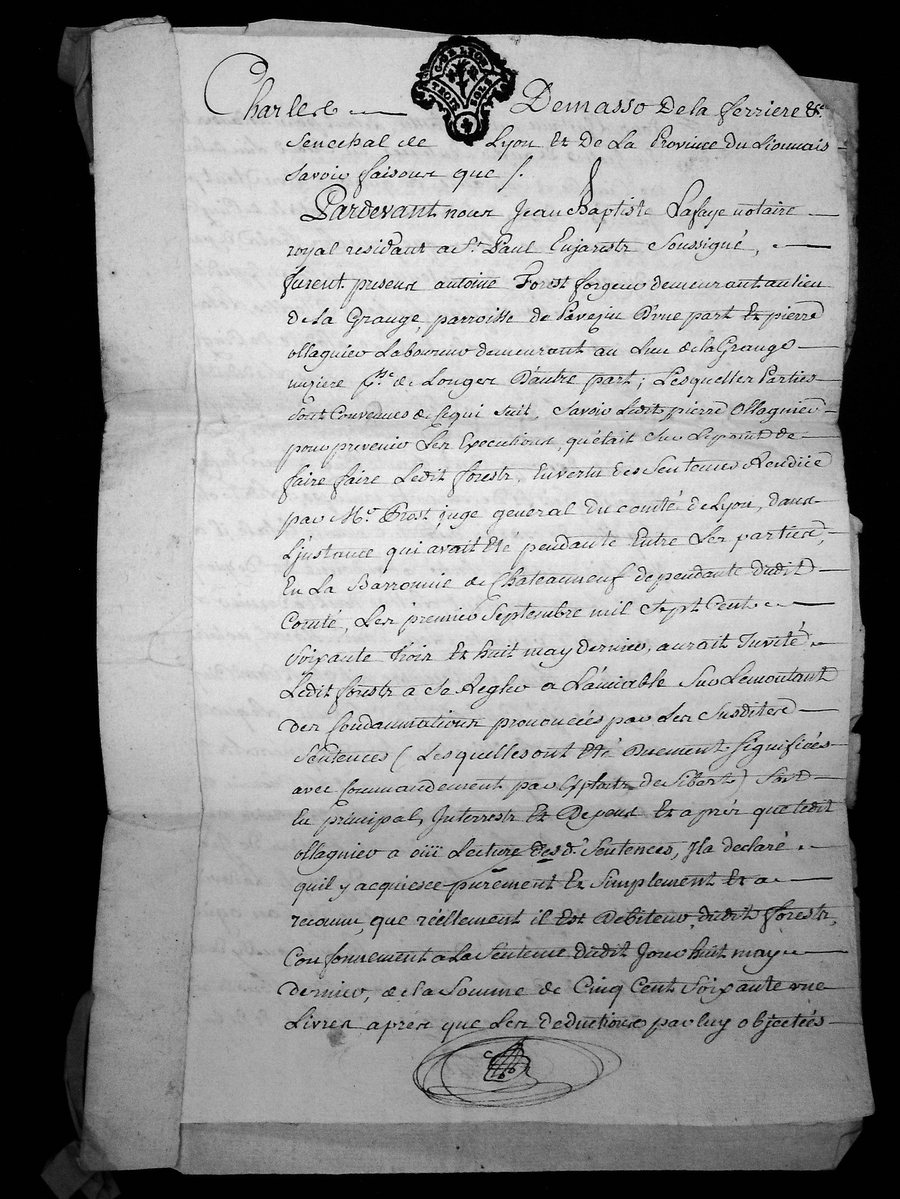 G. DE LYON
TROIS SOLS
Charles Demasso De la ferriere &c.
Senechal de Lyon et De La Province du Lionnais
Savoir faisons que /.
Pardevant nous Jean Baptiste Lafay notaire
royal residant a St. Paul Enjarestz Soussigné,
furent presens antoine Forest forgeur demeurant au lieu
de La Grange, parroisse de Pavezin D'une part Et pierre
ollagnier Laboureur demeurant au Lieu de la Grange
migiere psse. de Longes D'autre part; Lesquelles Parties
sont Convenues de ce qui Suit, Savoir Ledit pierre Ollagnier
pour prevenir Les Executions, qu'était Sur Le point de
faire faire Ledit forestz, En vertu des Sentences Rendües
par Mr. Prost juge general Du comté de Lyon, dans
L'jnstance qui avait Eté pendante Entre Les parties,
En La Barronnie de Chateauneuf dependante dudit
Comté, Les premier Septembre mil Sept Cent
Soixante Trois Et huit may dernier, aurait Invité
Ledit forestz a Se Regler a L'amiable Sur Le montant
des Condamnations prononcées par Les Susdites
Sentences (Lesquelles ont Eté Duement Signifiées
avec Commandement par Exploits de Sibert) Soit
En principal, Interrestz Et Depens Et après que Ledit
ollagnier a oüi Lecture desd. Sentences, Il a declaré
quil y acquiesce purement Et Simplement Et a
reconnu, que réellement il Est Debiteur dudit forestz,
Conformement a La Sentence dudit Jour huit may
dernier, de la Somme de Cinq Cent Soixante une
Livres après que Les deductions par luy objectées